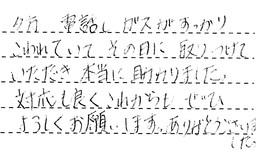 夕方 電話し ガスがすっかり
こわれていて その日に 取りつけて
いただき 本当に 助かりました。
対応も良く これからも ぜひ
よろしくお願いします。ありがとうございま
した。